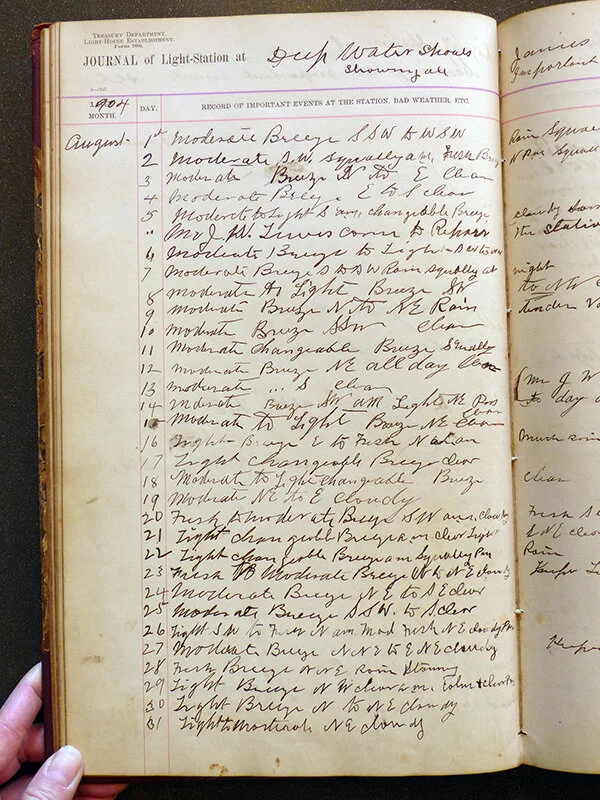 TREASURY DEPARTMENT,
LIGHT-HOUSE ESTABLISHMENT.
Form 306.
JOURNAL of Light-Station at Deep Water Shoals
1904
MONTH. DAY. RECORD OF IMPORTANT EVENTS AT THE STATION, BAD WEATHER, ETC.
August 1st Moderate Breeze SSW to WSW
2 Moderate S.W. Squally a.m. Fresh Breeze
3 Moderate Breeze N to E Clear
4 Moderate Breeze E to S clear
5 Moderate to Light S am, changeable Breeze
" Mr J. W. came to Repair
6 Moderate Breeze to Light SW to
7 Moderate Breeze S to SW Rain squally at
8 moderate to Light Breeze SW
9 moderate Breeze N to NE Rain
10 moderate Breeze SSW Clear
11 Moderate Changeable Breeze Squally
12 moderate Breeze NE all day Clear
13 moderate " S Clear
14 Moderate Breeze SW am Light NE Pm
15 Moderate to Light Breeze NE Clear
16 Light Breeze E to Fresh N
17 Light changeable Breeze clear
18 Moderate to Light Changeable Breeze
19 Moderate NE to E cloudy
20 Fresh to moderate Breeze SW am, cloudy
21 Light changeable Breeze am clear Light
22 Light changeable Breeze am Squally Pm
23 Fresh to Moderate Breeze N to NE cloudy
24 Moderate Breeze NE to SE clear
25 Moderate Breeze SSW. to S clear
26 Light SW to Fresh N am Mod Fresh NE cloudy Pm
27 Moderate Breeze NNE to ENE cloudy
28 Fresh Breeze NNE Rain Stormy
29 Light Breeze NW clear am Calm & clear Pm
30 Light Breeze N to NE cloudy
31 Light to Moderate NE cloudy
James
Important
Rain Squall
N Pm Squall
cloudy
the station
night
to NW
tender
Mr J W
to day
Much rain
clear
Fresh S
ENE
Rain